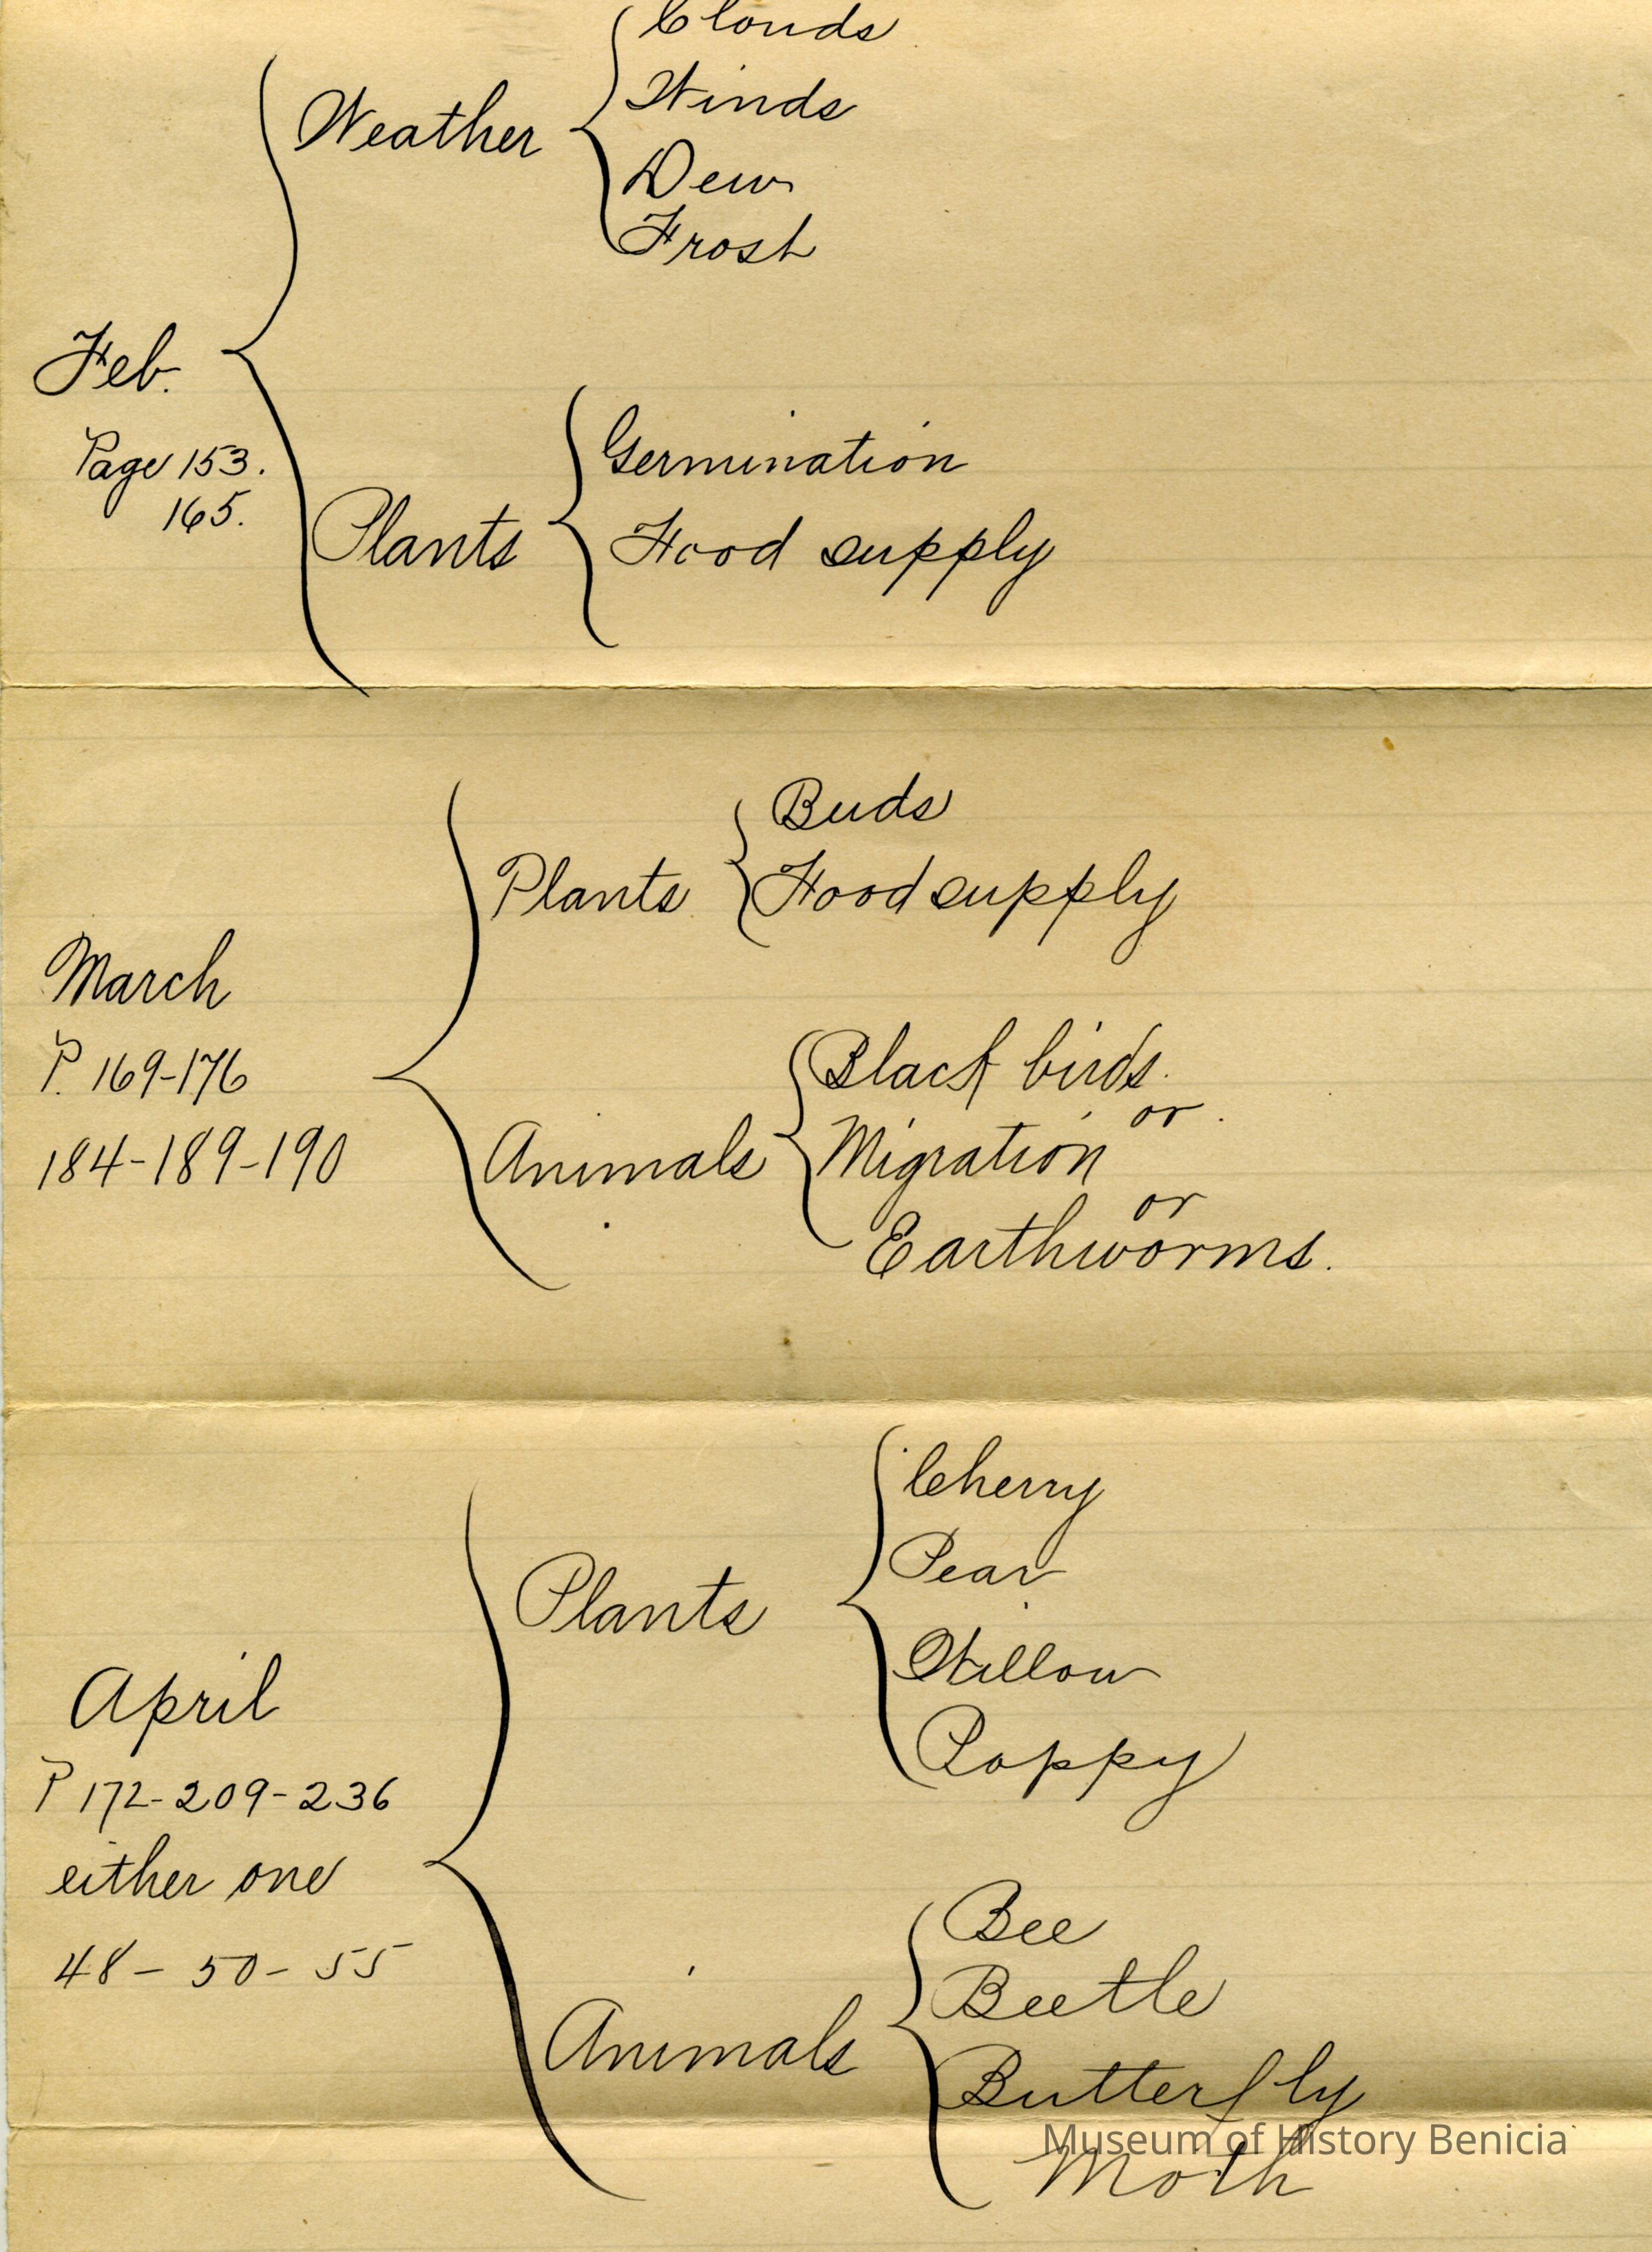 Clouds
Weather
Winds
Dew
Frost
Feb.
Page 153.
165.
Plants
Germination
Food supply
Plants
Buds
Food supply
March
P. 169-176
184-189-190
Animals
Black birds.
or
Migration
or
Earthworms.
Plants
Cherry
Pear
Willow
Poppy
April
P 172-209-236
either one
48-50-55
Animals
Bee
Beetle
Butterfly
Moth
Museum of History Benicia